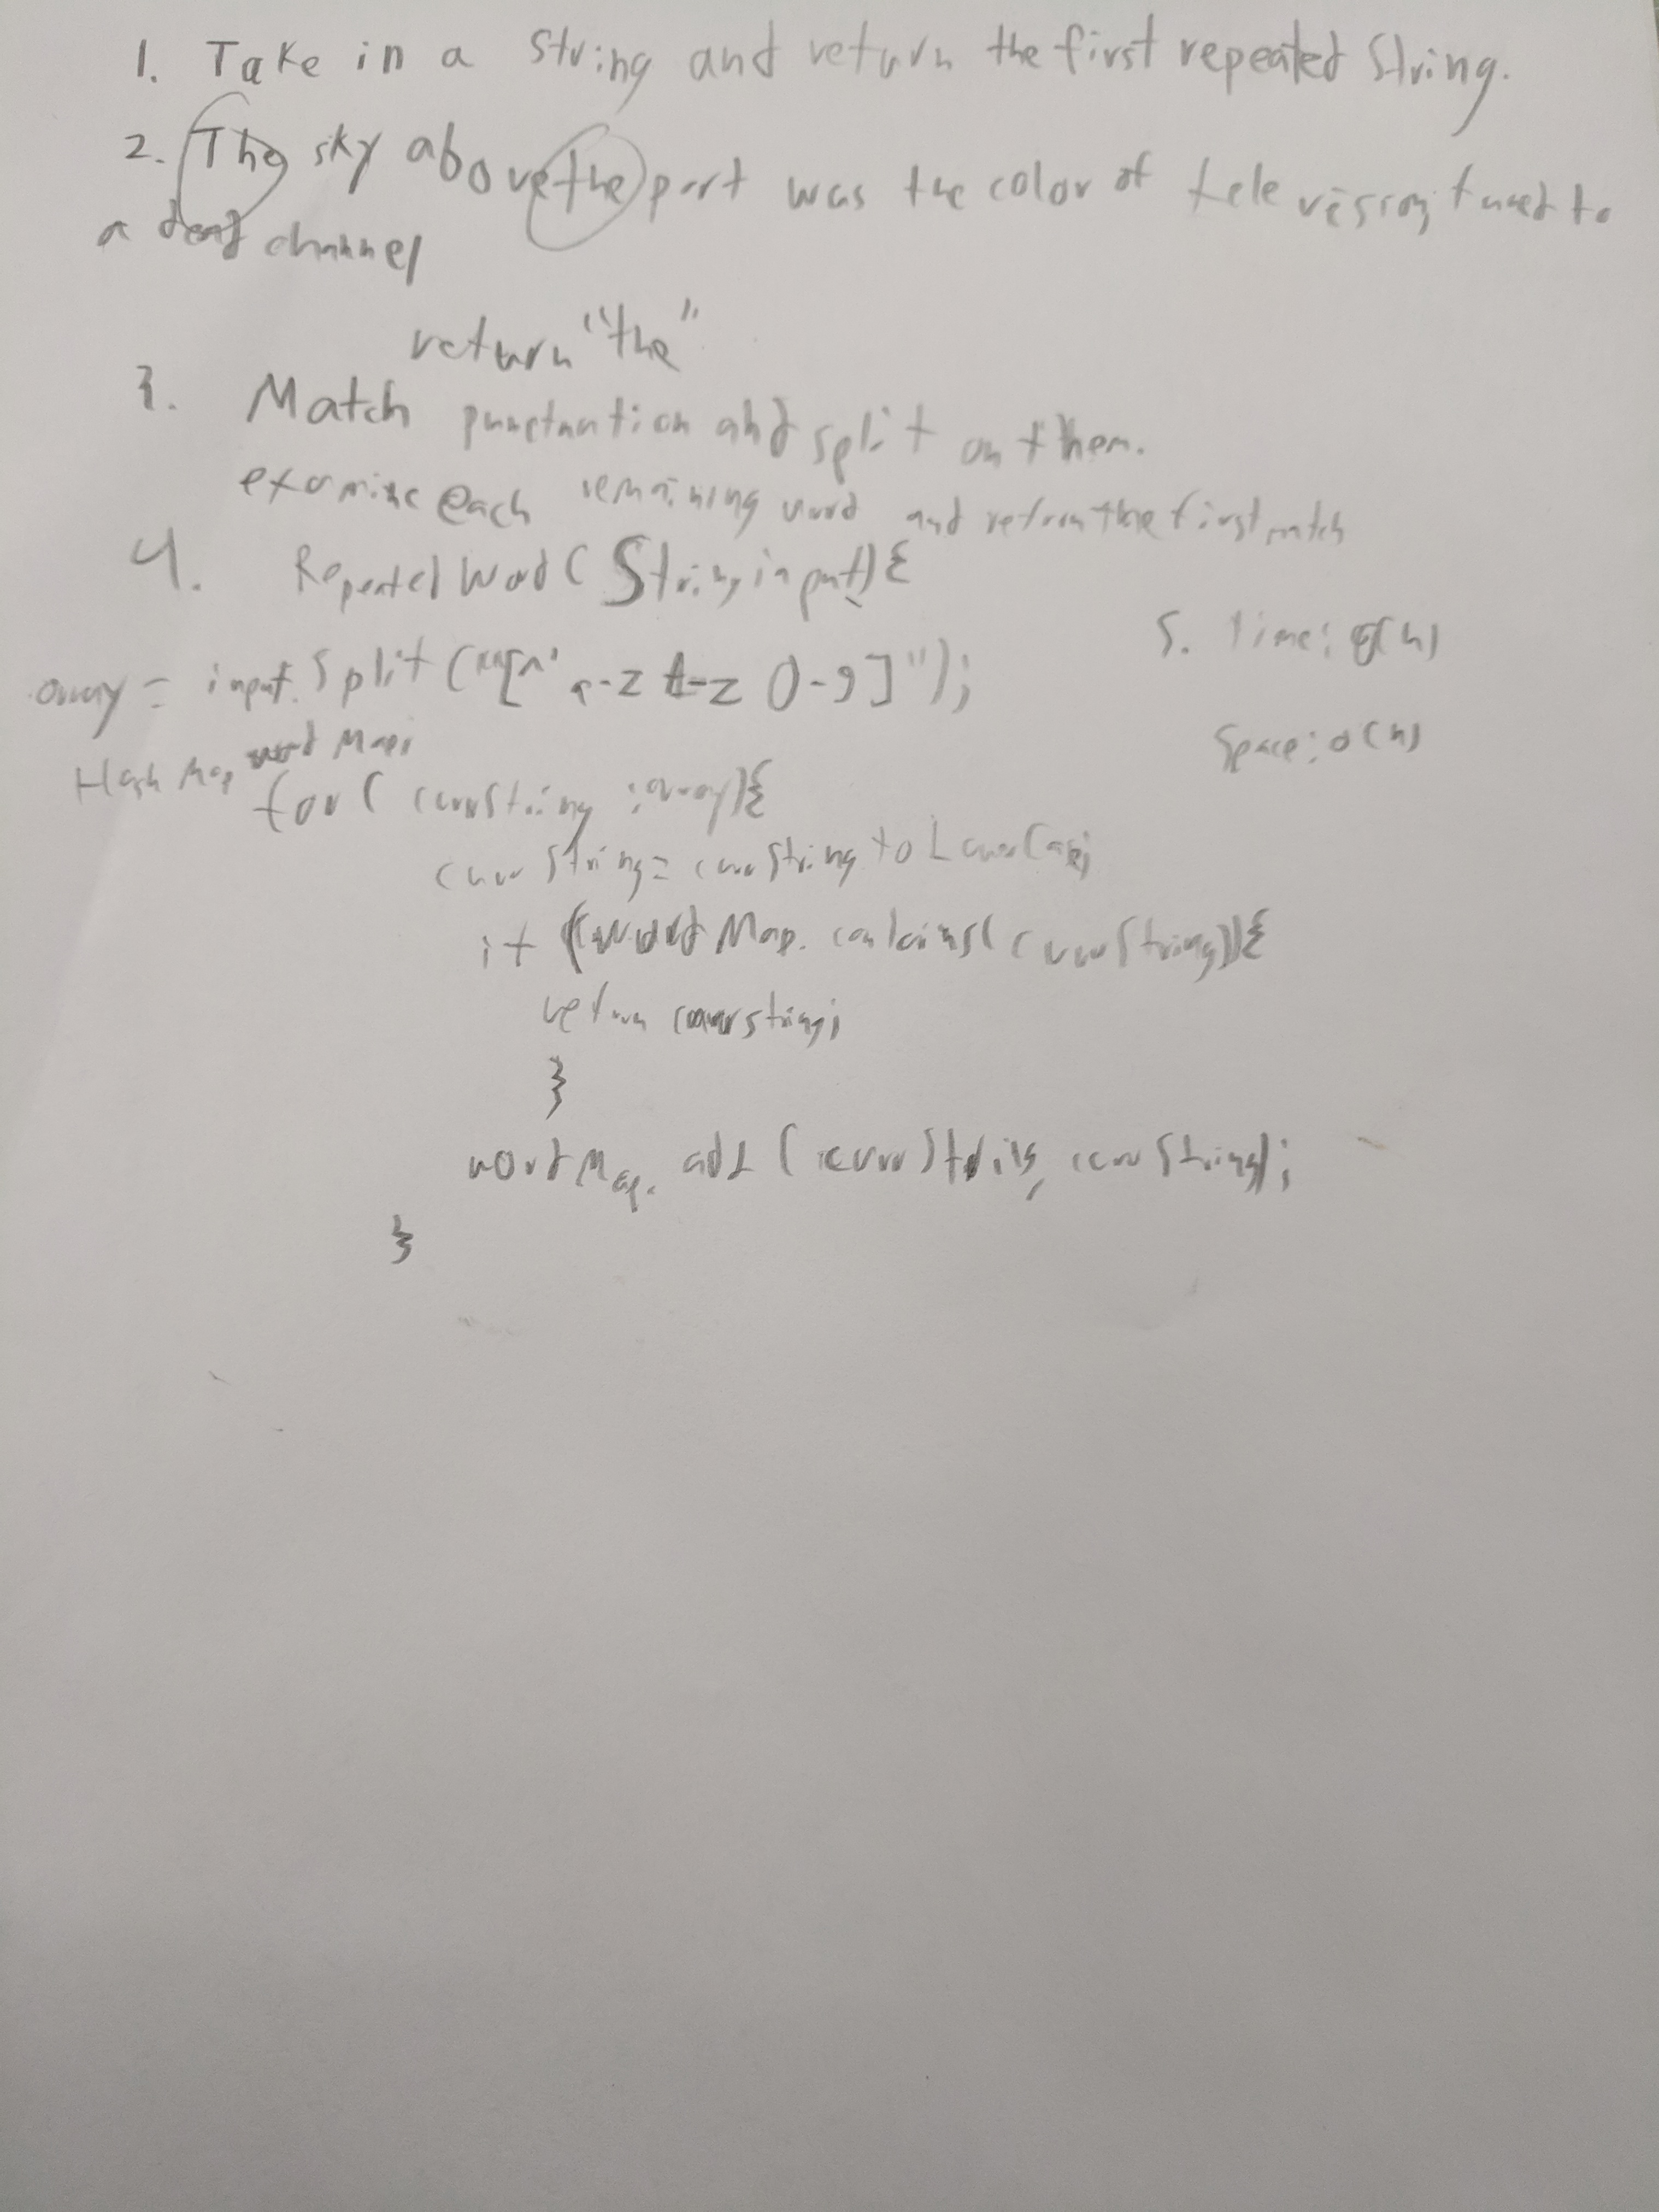 1. Take in a string and return the first repeated String.
2. The sky above the port was the color of television, tuned to
a dead channel
return "the"
3. Match punctuation and split on them.
examine each remaining word and return the first match
4. Repeated Word (String input) {
array = input.split("[^' a-z A-z 0-9]");
5. Time: O(n)
Hash Map word Map;
Space: O(n)
for ( currString : array) {
currString = currString toLowerCase;
if (word Map. contains( currString)) {
return currstring;
}
wordMap. add (currString, currString);
}